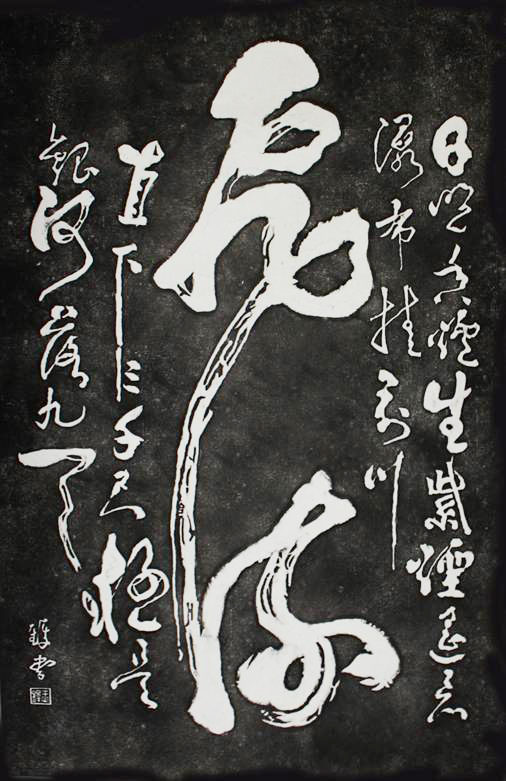 日照香爐生紫煙遙看
瀑布挂前川
飛流
直下三千尺疑是
銀河落九天
書